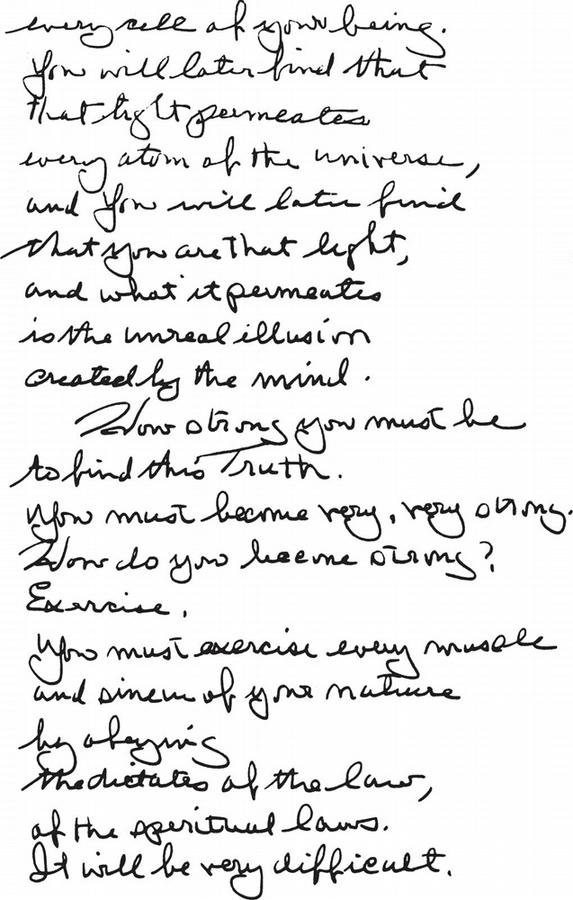 every cell of your being.
You will later find that
that light permeates
every atom of the universe,
and you will later find
that you are that light,
and what it permeates
is the unreal illusion
created by the mind.
How strong you must be
to find this Truth.
You must become very, very strong.
How do you become strong?
Exercise.
You must exercise every muscle
and sinew of your nature
by obeying
the dictates of the law,
of the spiritual laws.
It will be very difficult.